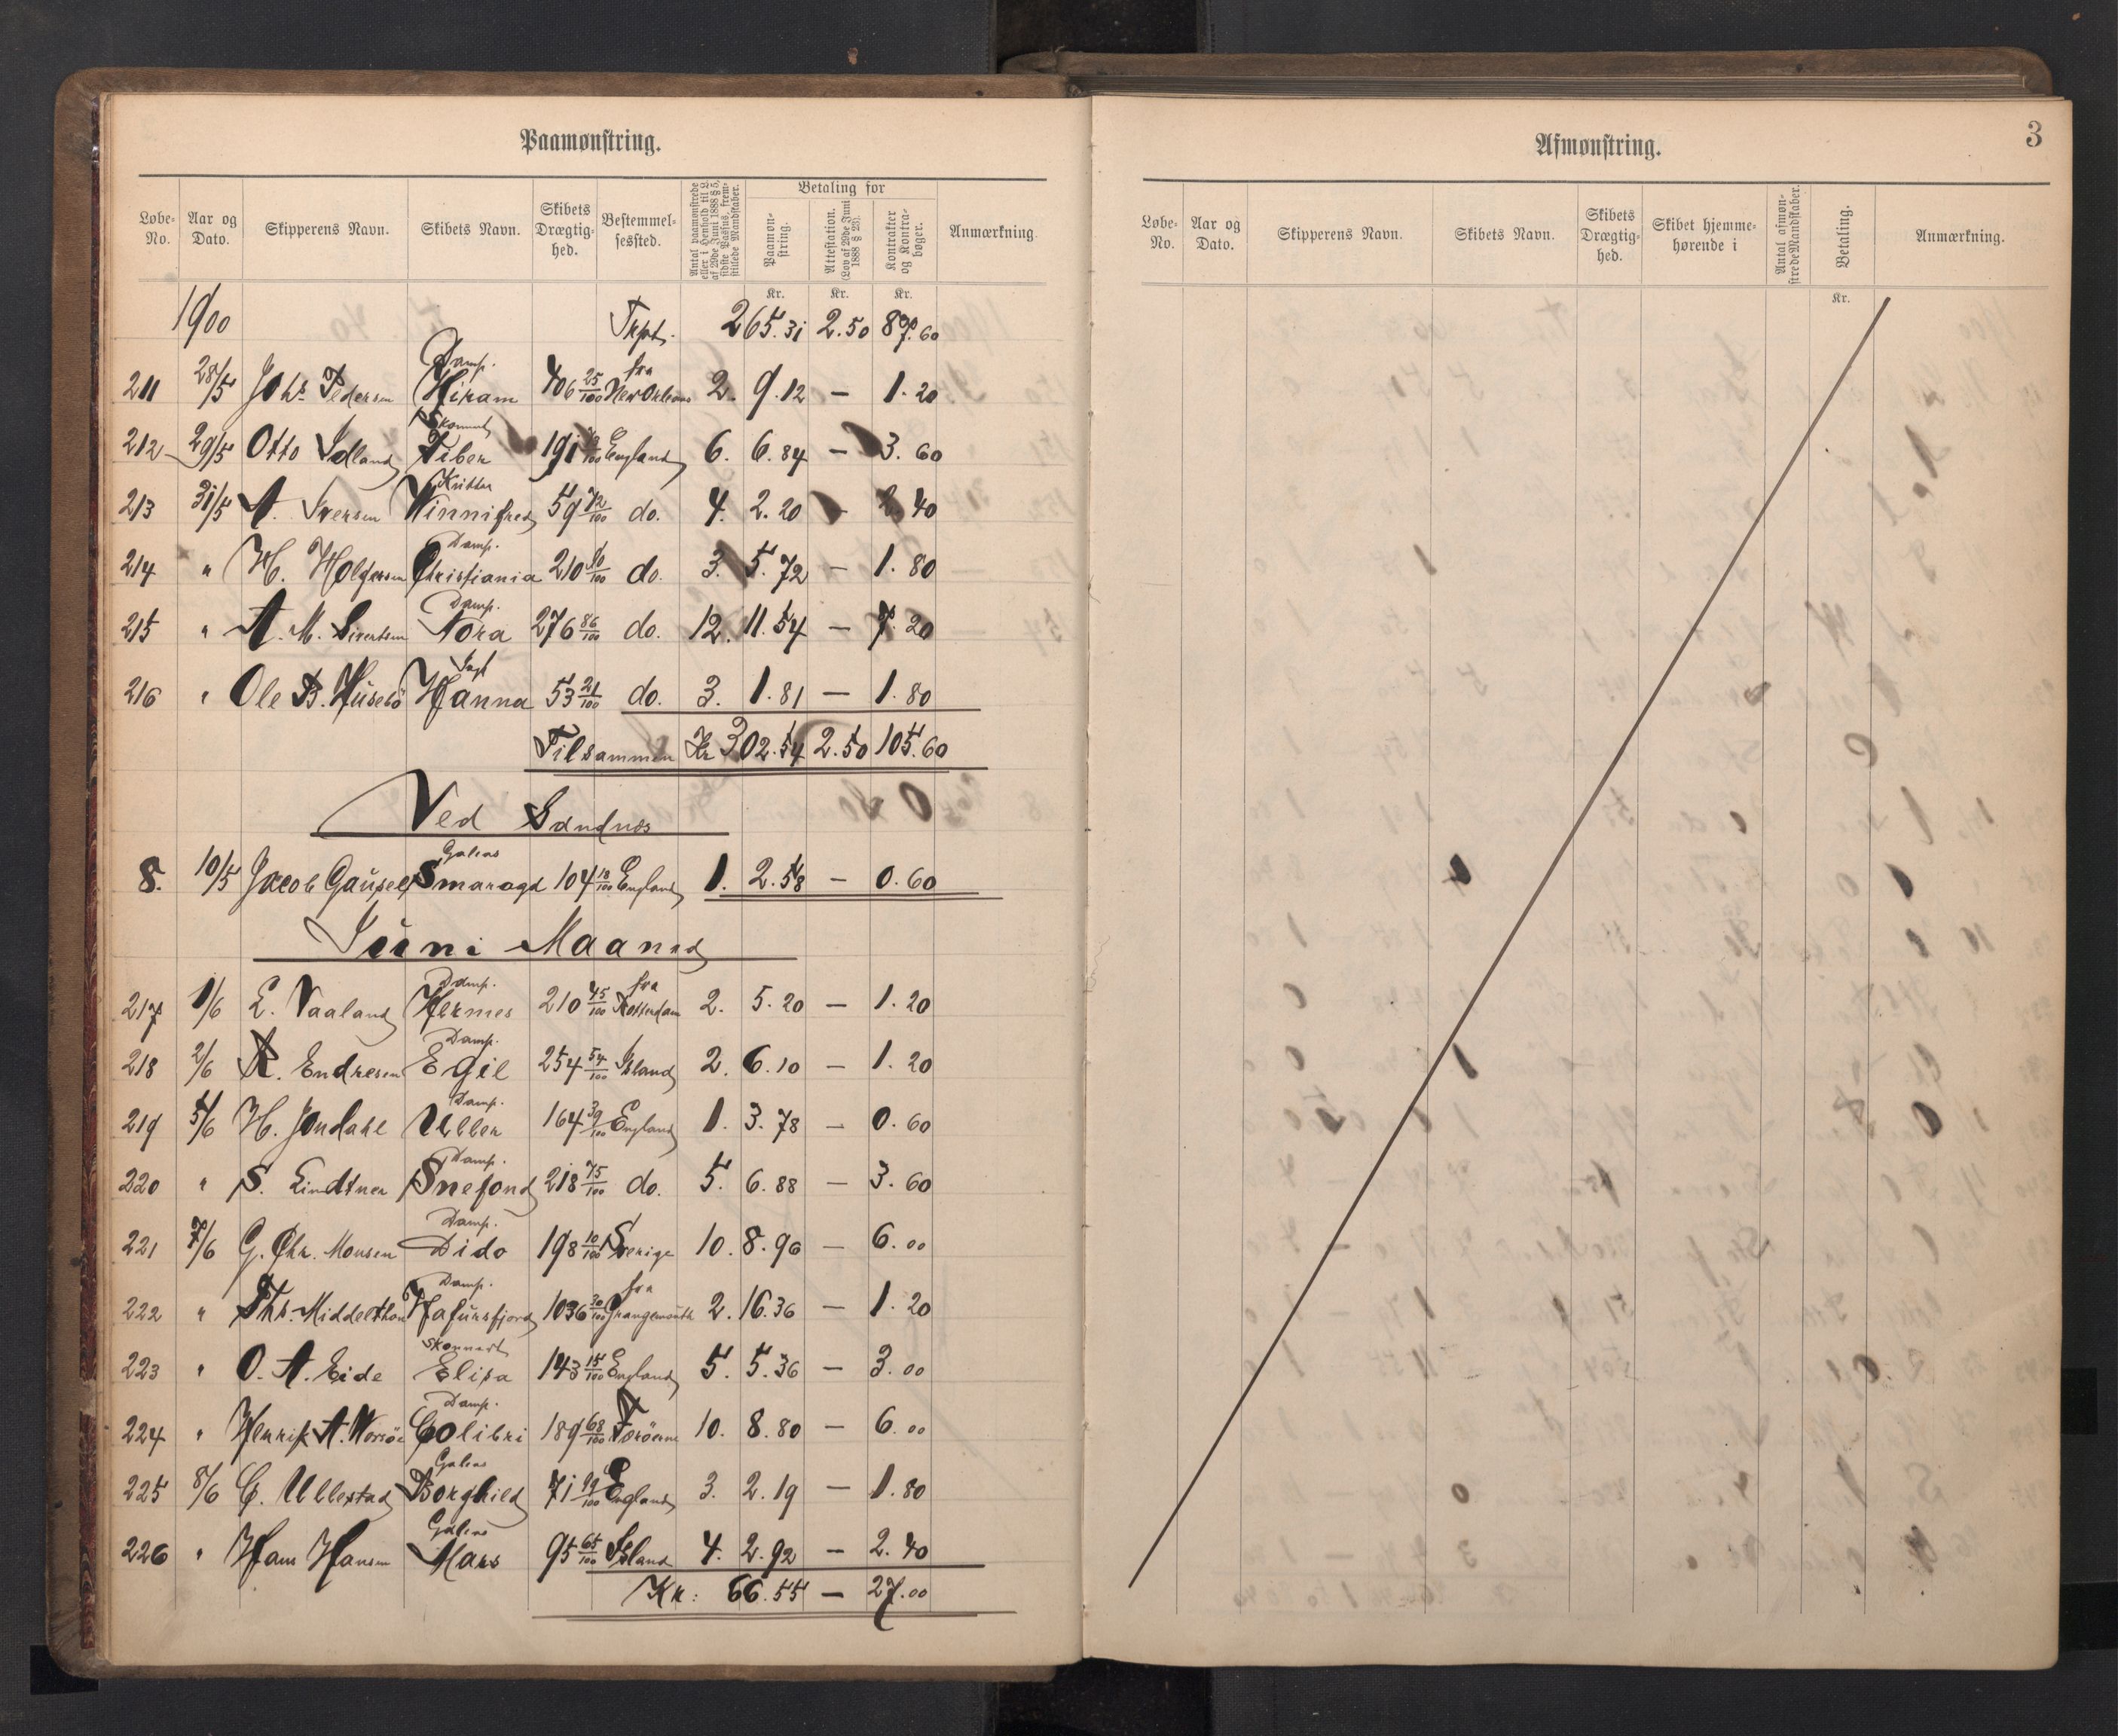 Paamønstring.
Løbe-No. Aar og Dato. Skipperens Navn. Skibets Navn. Skibets Drægtighed. Bestemmelsessted. Antal paamønstrede eller i Henhold til L. af 29de Juni 1888 § 5, sidste Passus, fremstillede Mandskaber. Betaling for Paamønstring. Attestation. (Lov af 29de Juni 1888 § 23). Kontrakter og Kontrabøger. Anmærkning
Kr. Kr. Kr.
1900 Trpt. 265.31 2.50 87.60
Damp. fra
211 28/5 Johs Pedersen Hiram 406 25/100 New Orleans 2. 9.12 — 1.20
Skonnert
212 29/5 Otto Idland Tiber 191 /100 England 6. 6.84 — 3.60
Kutter
213 31/5 A. Iversen Winnifred 59 72/100 do. 4. 2.20 - 2.40
Damp.
214 " H. Holgersen Christiania 210 /100 do. 3. 5.72 — 1.80
Damp.
215 " A. M. Sivertsen Nora 276 86/100 do. 12. 11.54 — 7.20
Jagt
216 " Ole B. Husebö Hanna 53 21/100 do. 3. 1.81 — 1.80
Tilsammen Kr 302.54 2.50 105.60
Ved Sandnes
Galeas
8. 10/5 Jacob Gausel Smaragd 104 18/100 England 1. 2.58 — 0.60
Juni Maaned
Damp. fra
217 1/6 L. Vaaland Hermes 210 45/100 Rotterdam 2. 5.20 — 1.20
Damp.
218 2/6 R. Endresen Egil 254 54/100 Island 2. 6.10 — 1.20
Damp.
219 5/6 H. Jondahl Uller 164 39/100 England 1. 3.78 — 0.60
Damp.
220 " S. Lindtner Snefond 218 75/100 do. 5. 6.88 — 3.60
Damp.
221 7/6 G. Chr. Monsen Dido 198 10/100 Sverige 10. 8.96 — 6.00
Damp. fra
222 " Thr. Middelthon Hafursfjord 1036 30/100 Grangemouth 2. 16.36 — 1.20
Skonnert
223 " O. A. Eide Elisa 143 15/100 England 5. 5.36 — 3.00
Damp.
224 " Henrik A. Worsöe Colibri 189 68/100 Færöerne 10. 8.80 — 6.00
Galeas
225 8/6 C. Ullestad Borghild 71 /100 England 3. 2.19 — 1.80
Galeas
226 " Hans Hansen Mars 95 65/100 Island 4. 2.92 — 2.40
Kr: 66.55 — 27.00
3
Afmønstring.
Løbe-No. Aar og Dato. Skipperens Navn. Skibets Navn. Skibets Drægtighed. Skibet hjemmehørende i Antal afmønstrede Mandskaber. Betaling. Anmærkning.
Kr.